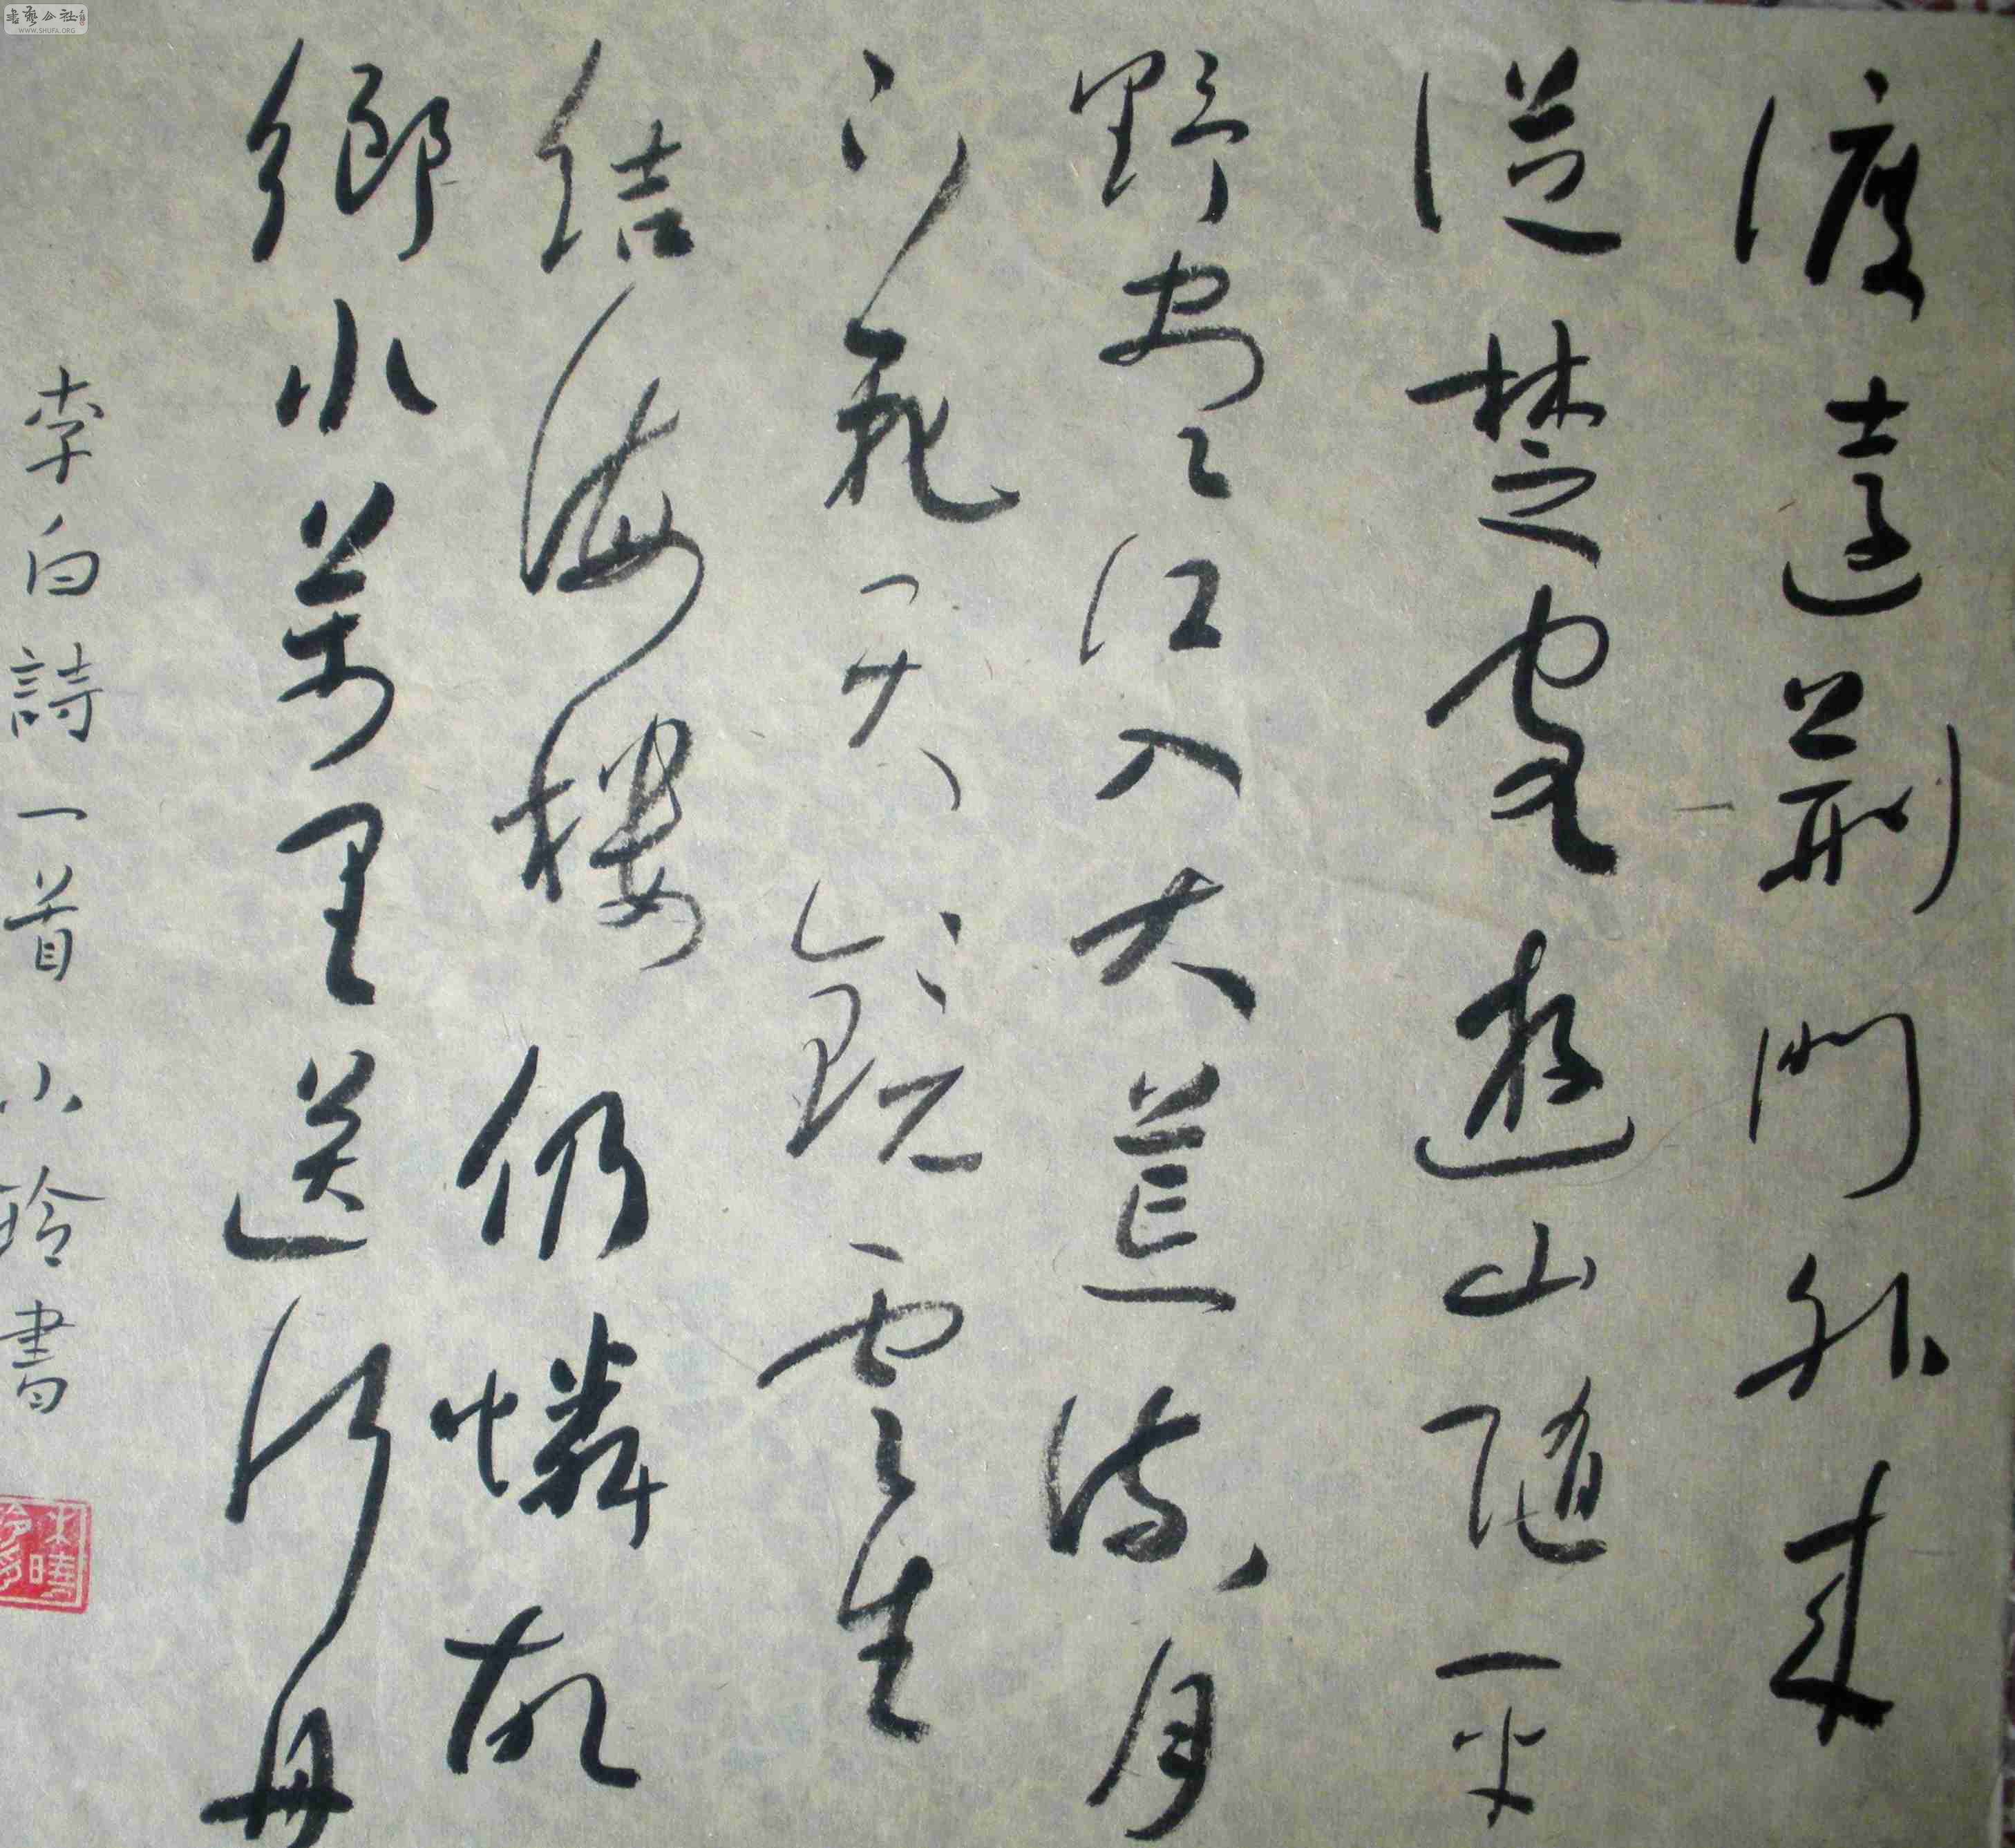 書藝公社
WWW.SHUFA.ORG
渡遠荊門外來
從楚國遊山隨平
野盡江入大荒流月
下飛天鏡雲生
結海樓仍憐故
鄉水萬里送行舟
李白詩一首 小玲書